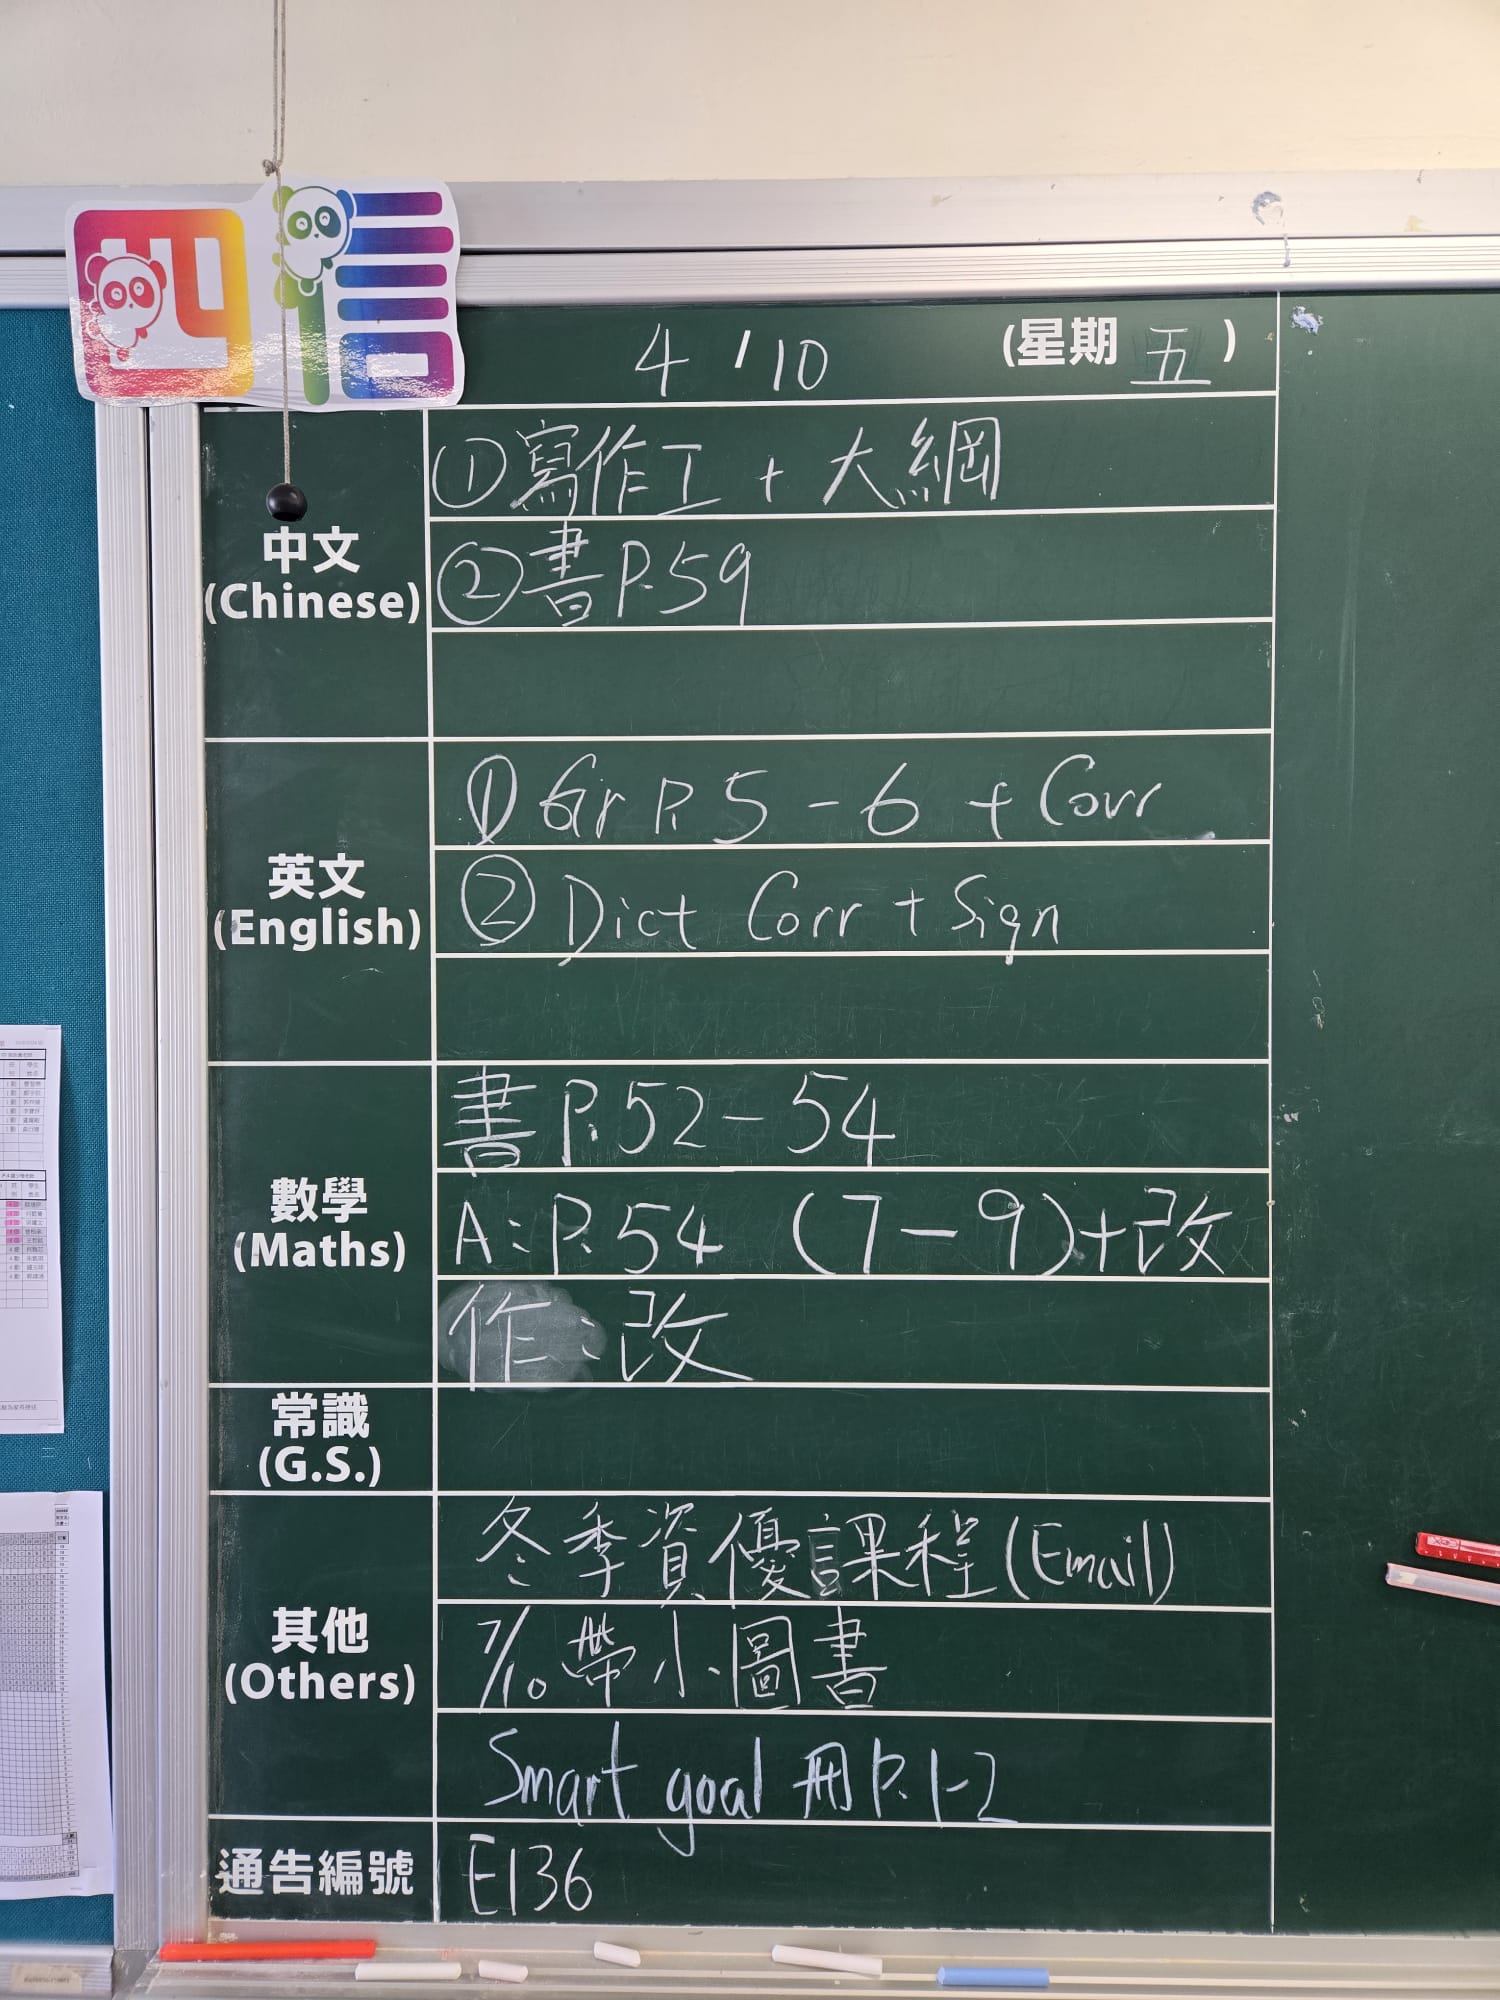 四信
4 / 10 (星期 五 )
中文
(Chinese)
①寫作工 + 大綱
②書P.59
英文
(English)
① Gr P. 5 - 6 + Corr
② Dict Corr + Sign
數學
(Maths)
書 P. 52 - 54
A: P. 54 (7 - 9) + 改
作: 改
常識
(G.S.)
其他
(Others)
冬季資優課程 (Email)
7/10 帶小圖書
Smart goal 冊 P. 1-2
通告編號
E136